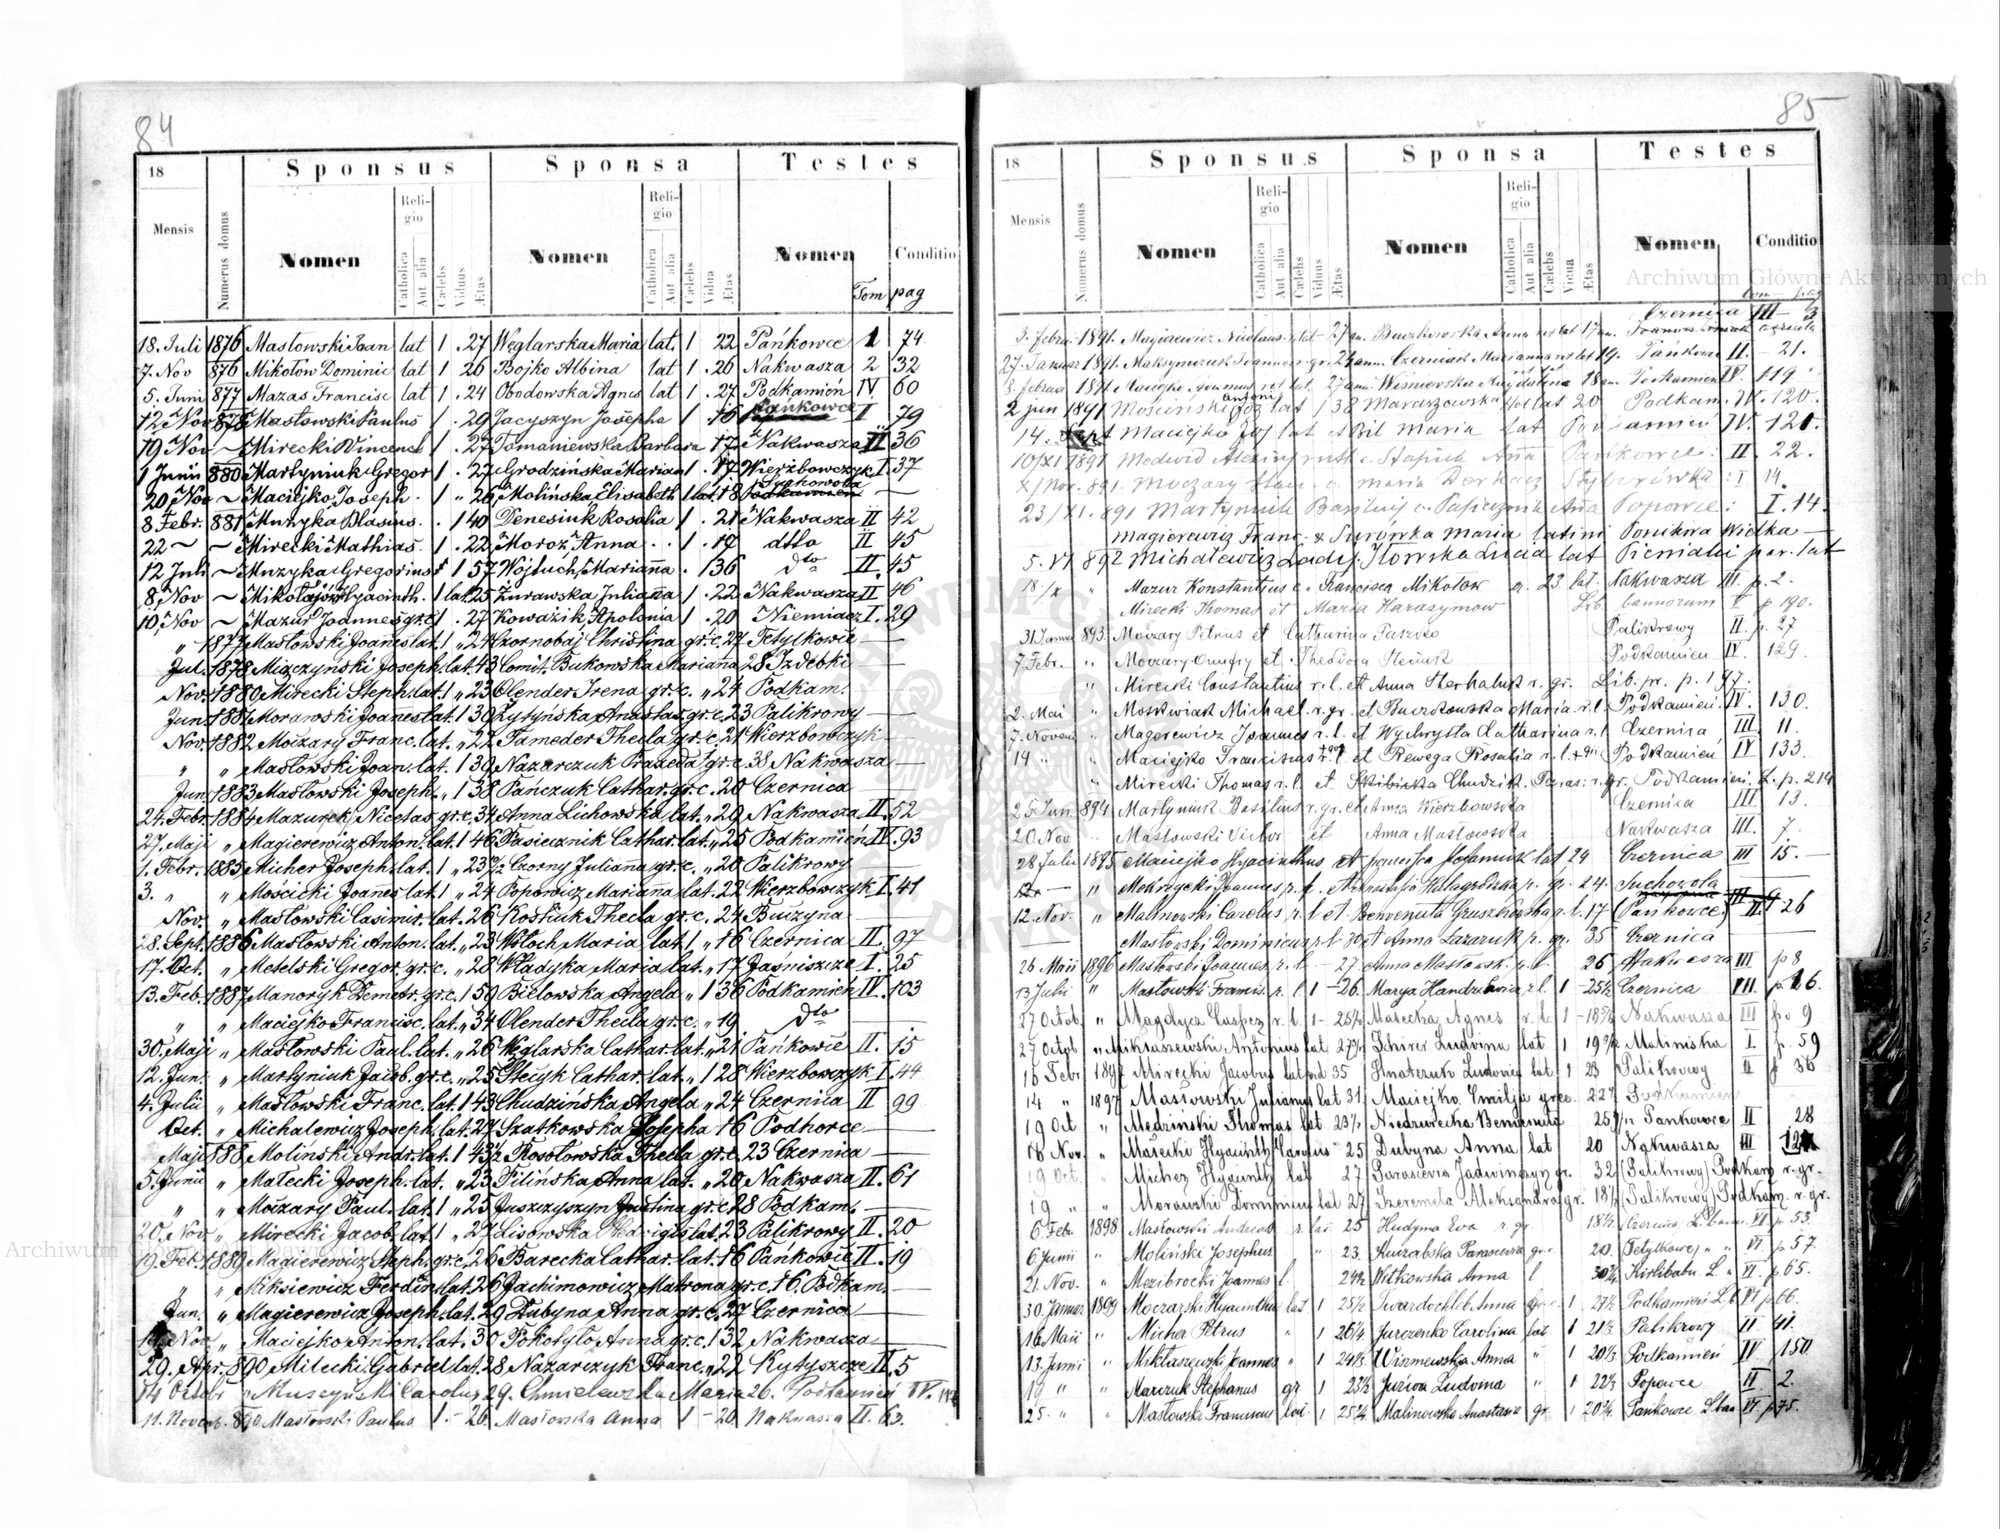 84
18 Sponsus Sponsa Testes
Mensis Numerus domus Nomen Religio Catholica Aut alia Cælebs Viduus Ætas Nomen Religio Catholica Aut alia Cælebs Vidua Ætas Nomen Conditio
Tom pag
18. Juli 1876 Masłowski Joan lat 1 . 27 Węglarska Maria lat. 1 22 Pańkowce 1 74
7. Nov 876 Mikołów Dominic lat 1 26 Bojko Albina lat 1 . 26 Nakwasza 2 32
5. Juni 877 Mazas Francisc lat 1 . 24 Obodowska Agnes lat 1 . 27 Podkamień IV 60
12 Nov 878 Masłowski Paulus . 29 Jacyszyn Josepha 1 . 16 Pańkowce I 79
19 Nov ~ Mirecki Vincence 1 . 27 Tomaniewska Barbara . 17 Nakwasza II 36
1 Junii 880 Martyniuk Gregor 1 . 27 Grodzińska Marian 1 . 17 Wierzbowczyk I. 37
20 Nov ~ Maciejko Joseph . 1 " 26 Molińska Elisabeth 1 lat. 18 Suchowola —
8 Febr. 881 Muzyka Blasius . . 1 40 Denesiuk Rosalia 1 . 21 Nakwasza II 42
22 ~ ~ Mirecki Mathias . 1 . 22 Moroz Anna . . 1 . 19 dtto II 45
12 Juli ~ Muzyka Gregorius 1 57 Wojtuch Marianna . 1 36 dto II. 45
8 Nov ~ Mikołajów Hyacinth. 1 lat. 25 Żurawska Julianna 1 . 22 Nakwasza II 46
10. Nov ~ Mazur Joannes gr. c 1 . 27 Koważik Apolonia 1 . 20 Niemiacz I. 29
" 1877 Masłowski Joanes lat. 1 " 24 Czornobaj Christina gr. c. 27 Tetylkowce —
Jul. 1878 Miączyński Joseph. lat. 43 Comit. Bukowska Marianna 28 Izdebki —
Nov. 1880 Mirecki Steph. lat. 1 " 23 Olender Irena gr. c. " 24 Podkam. —
Jun. 1881 Morawski Joanes lat. 1 30 Żytyńska Anastas. gr. c. 23 Palikrowy —
Nov. 1882 Moczary Franc. lat. " 22 Tameder Thecla gr. c. 21 Wierzbowczyk —
" " Masłowski Joan. lat. 1 39 Nazarczuk Praxeda gr. c. 38 Nakwasza —
Jun. 1883 Masłowski Joseph. " 1 38 Pańczuk Cathar. gr. c. 20 Czernica —
24. Febr. 1884 Mazurek Nicetas gr. c. 34 Anna Lichowska lat. " 20 Nakwasza II. 52
27. Maji " Magierewicz Anton. lat. 1 46 Pasiecznik Cathar. lat. " 25 Podkamień IV. 93
1. Febr. 1885 Micher Joseph. lat. 1 " 23 Czorny Juliana gr. c. " 20 Palikrowy —
3. " " Mościcki Joanes lat. 1 " 24 Popowicz Mariana lat. 22 Wierzbowczyk I. 41
Nov. " Masłowski Casimir. lat. 26 Kostiuk Thecla gr. c. 24 Buczyna —
28. Sept. 1886 Masłowski Anton. lat. " 23 Wołoch Maria lat. 1 " 16 Czernica II. 97
17. Oct. " Metelski Gregor. gr. c. " 28 Władyka Maria lat. " 17 Jaśniszcze I. 25
13. Feb. 1887 Manoryk Demetr. gr. c. 1 59 Bielowska Angela " 1 36 Podkamień IV. 103
" " Maciejko Francisc. lat. " 34 Olender Thecla gr. c. " 19 dto —
30. Maji " Masłowski Paul. lat. " 26 Węglarska Cathar. lat. " 21 Pańkowce II. 15
12. Jun. " Martyniuk Jacob. gr. c. " 25 Steciyk Cathar. lat. " 1 28 Wierzbowczyk I. 44
4. Julii " Masłowski Franc. lat. 1 43 Chudzińska Angela " 24 Czernica II 99
Oct. " Michalewicz Joseph. lat. " 27 Szatkowska Josepha 16 Podhorce —
Maji 888 Moliński Andr. lat. 1 43½ Rosołowska Thecla gr. c. 23 Czernica —
5. Junii " Małecki Joseph. lat. " 23 Pilińska Anna lat. " 20 Nakwasza II. 61
" " Moczary Paul. lat. 1 " 25 Juszczyszyn Justina gr. c. 28 Podkam. —
20. Nov " Mirecki Jacob. lat. 1 " 27 Lisowska Hedvigis lat. 23 Palikrowy II. 20
19. Feb. 1889 Magierewicz Steph. gr. c. 26 Barecka Cathar. lat. 16 Pańkowce II. 19
" " Miksiewicz Ferdin. lat. 26 Jachimowicz Matrona gr. c. 16. Podkam. —
Jun. " Magierewicz Joseph. lat. 29 Dubyna Anna gr. c. 27 Czernica —
Nov " Maciejko Anton. lat. 30 Pokotyło Anna gr. c. 1 32 Nakwasza —
29. Apr. 890 Milecki Gabriel lat. 28 Nazarczyk Franc. " 22 Kutyszcze II. 5
14 Octobr " Muszyński Carolus 29. Chmielewska Maria 26. Podkamień IV.
11. Novemb. 890 Masłowski Paulus 1. - 26. Masłowska Anna 1 - 20. Nakwasza II. 63.
85
18 Sponsus Sponsa Testes
Mensis Numerus domus Nomen Religio Catholica Aut alia Cælebs Viduus Ætas Nomen Religio Catholica Aut alia Cælebs Vidua Ætas Nomen Conditio
tom — pag
3. Febru. 1891. Magierewicz Nicolaus lat - 27 an. Buczkowska Anna lat 17 an. Czernica III — 3
27. Januar 1891. Maksymczuk Joannes gr. 24 ann. Czerniak Marianna lat 19. Pańkowce II. — 21.
8 februar 1891 Maciejko lat. 27 ann. Wiśniewska Magdalena 18 an. Podkamień IV. 119
2 jun 1891 Mościński Antoni Joz lat 1 38 Maraszewska lat 20 Podkam. IV. 120.
14. Sept Maciejko Joz lat et Bil Maria lat Podkamień IV. 121.
10/XI 1891 Medwid c. Stapiuk Anna Pańkowce: II. 22.
X/Nov. 891. Moczary c. Maria Derkacz Styberówka: I 14.
23/XI. 891 Martyniuk Basilius c. Pasieczniuk Anna Popowce: I. 14.
Magierewicz Franc. & Surówka Maria latini Ponikwa Wielka —
5. VI 892 Michałewicz Iłowska Lucia lat Pieniaki par. lat
18/X " Mazur Konstantius c. Francisca Mikołow a. 23 lat. Nakwasza III. p. 2.
Mirecki Thomas et Maria Harasymow Lib bannorum V p 190.
31 Janua 893. Moczary Petrus et Catharina Paszko Palikrowy II. p. 27
7 Febr. " Moczary Onufry et Theodora Podkamień IV. 129.
" Mirecki Constantius r. l. et Anna r. gr. Lib. pr. p. 197.
2. Mai " Moskwiak Michael r. gr. et Buczkowska Maria r. l. Podkamień. IV. 130.
7. Novem " Magerewicz Joannes r. l. et Wychrysta Catharina r. l. Czernica III. 11.
14 " " Maciejko Franciscus r. l. et Rewega Rosalia r. l. Podkamień IV 133.
" Mirecki Thomas r. l. et r. gr. Podkamień. p. 214
25. Jun. 894 Martyniuk Basilius r. gr. et Anna Wierzbowska Czernica III. 13.
20. Nov. " Masłowski Victor et Anna Masłowska Nakwasza III. 7.
28 Julii 1895 Maciejko Hyacinthus et lat 24 Czernica III 15. —
" Mokrzycki Joannes gr. 24. Suchowola
12. Nov. " Malinowski Carolus r. l. et Benvenuta r. l. 17 (Pańkowce) II. 26
Masłowski Dominicus r. l 30 et Anna Łazaruk r. gr. 35 Czernica
26 Maii 1896 Masłowski Joannes r. l. - 27 Anna Masłowsk. 26 Nakwasza III p 8
13 Julii " Masłowski Francis. r. l. 1 - 26. Marya Handziewicz r. l. 1 - 25½ Czernica III. p. 16.
27 Octob " Magdycz r. l. 1 - 25½ Małecka Agnes r. l. 1 - Nakwasza III p. 9
27 Octob " Miklaszewski Antonius lat Schirer Ludvina lat 1 19 Maliniska I. p. 59
16 Febr 1897 Mirecki Jacobus lat 35 Hnateruk Ludovica lat 1 23 Palikrowy II p 36
14 " 1897 Masłowski Julianus lat 31 Maciejko Emilja gr. c. 22 Podkamień
19 Oct " Medziński Thomas lat Niedzwiecka Benvenuta Pańkowce II 28
18 Nov. " Małecki Hyacinth Carolus 25 Dubyna Anna lat 20 Nakwasza III
19 Oct. " Micher Hyacinth lat 27 gr. 32 (Palikrowy) Podkam. r. gr.
19 " " Morawski Dominicus lat 27 Szeremeta Aleksandra gr. 18½ (Palikrowy) Podkam. r. gr.
6 Febr. 1898 Masłowski Andreas r. lat. 25 Hudyma Eva r. gr. 18½ (Czernica L. bann. VI p. 53.
6 Junii " Moliński Josephus " 23 Kuczabska Parascevia gr. 20. (Tetylkowce) " " VI. p 57.
21. Nov. " Mezibrocki Joannes l. Witkowska Anna l Kirlibaba L. " VI. p 65.
30. Januar 1899 Moczarski Hyacinthus lat 1 25½ Twardochleb Anna gr. c. 1 Podkamień L. b VI p 66.
16. Maii " Micher Petrus " 1 Jurczenko Carolina lat 1 Palikrowy II 41.
13. Junii " Miklaszewski Joannes " 1 Wiszniewska Anna " 1 Podkamień IV 150
19 " " Marczuk Stephanus gr 1 23½ Ludvina " 1 Popowce II 2.
25. " " Masłowski Franciscus lat. 1 Malinowska Anastasia gr. 1 Pańkowce L ban VI p 75.
Archiwum Główne Akt Dawnych
Archiwum Główne Akt Dawnych